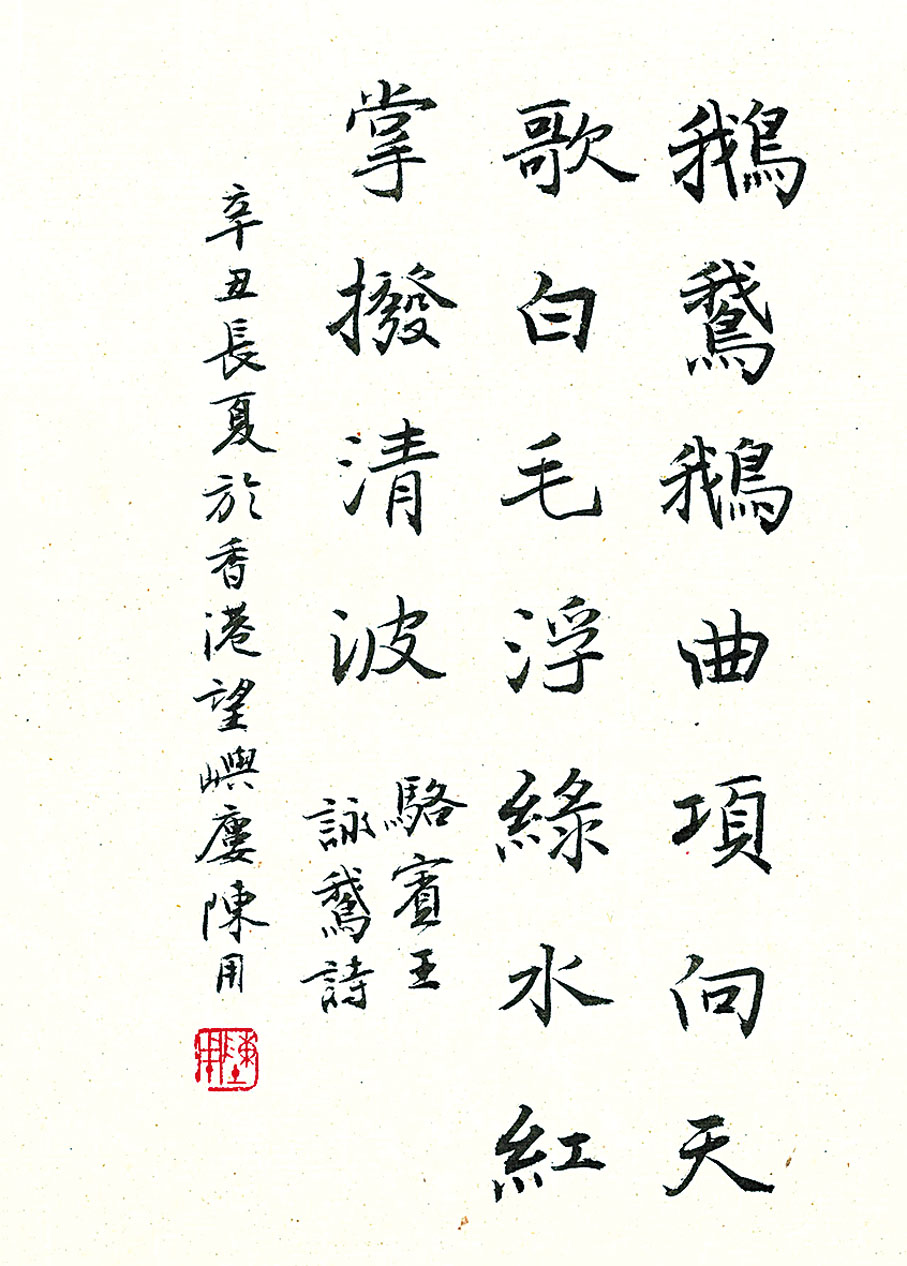 鵝鵞鵝曲項向天
歌白毛浮綠水紅
掌撥清波
駱賓王
詠鵞詩
辛丑長夏於香港望嶼廔陳用